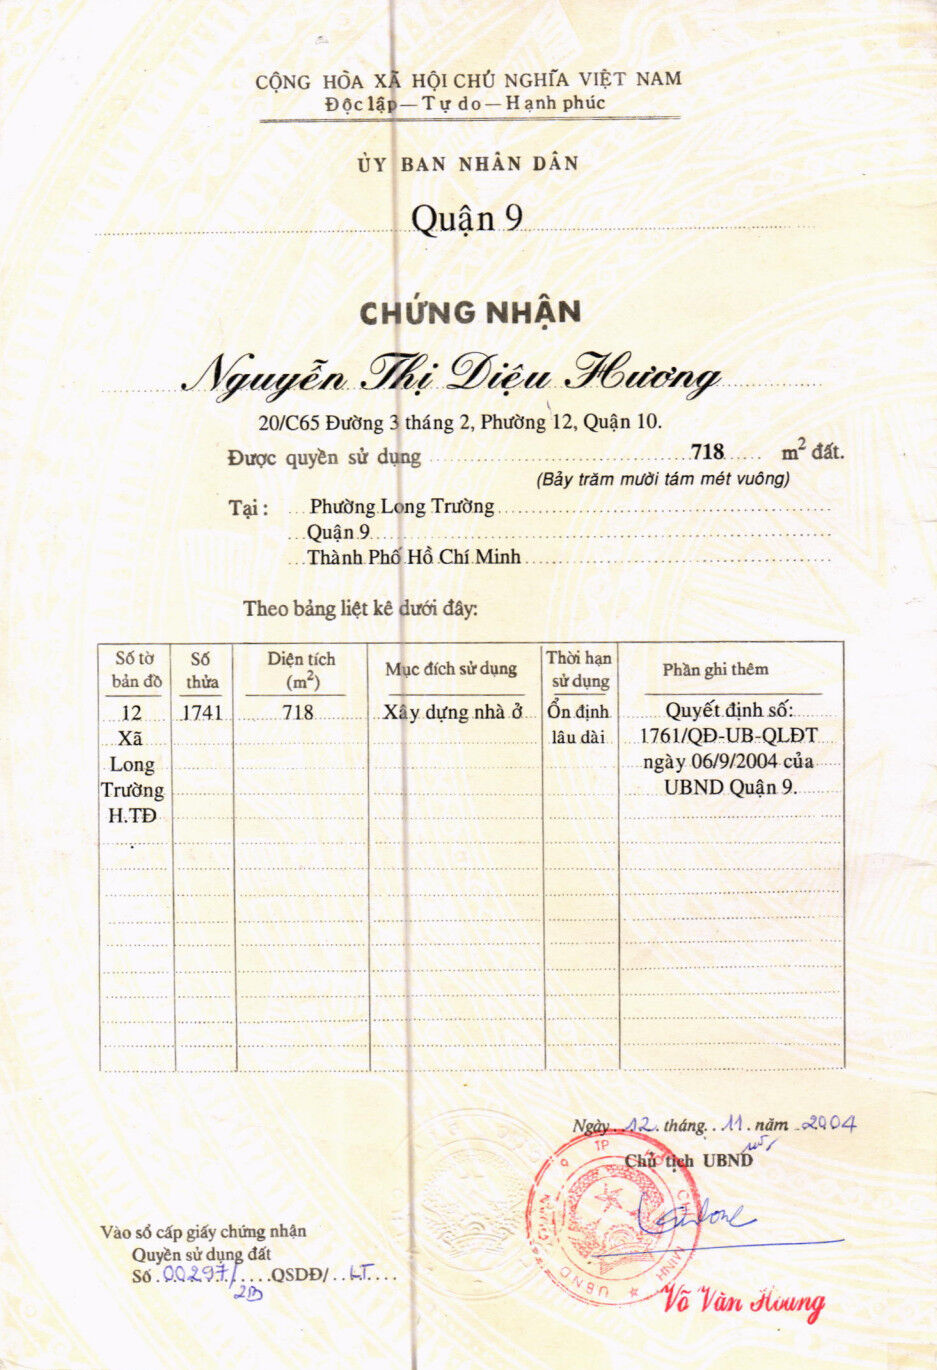 CỘNG HÒA XÃ HỘI CHỦ NGHĨA VIỆT NAM
Độc lập — Tự do — Hạnh phúc
ỦY BAN NHÂN DÂN
Quận 9
CHỨNG NHẬN
Nguyễn Thị Diệu Hương
20/C65 Đường 3 tháng 2, Phường 12, Quận 10.
Được quyền sử dụng 718 m² đất.
(Bảy trăm mười tám mét vuông)
Tại : Phường Long Trường
Quận 9
Thành Phố Hồ Chí Minh
Theo bảng liệt kê dưới đây:
Số tờ bản đồ Số thửa Diện tích (m²) Mục đích sử dụng Thời hạn sử dụng Phần ghi thêm
12 1741 718 Xây dựng nhà ở Ổn định Quyết định số:
Xã lâu dài 1761/QĐ-UB-QLĐT
Long ngày 06/9/2004 của
Trường UBND Quận 9.
H.TĐ
Ngày 12 tháng 11 năm 2004
Chủ tịch UBND
UBND QUẬN 9 TP HỒ CHÍ MINH
Vào sổ cấp giấy chứng nhận
Quyền sử dụng đất
Số 00297/ QSDĐ/ LT
2B
Võ Văn Houng